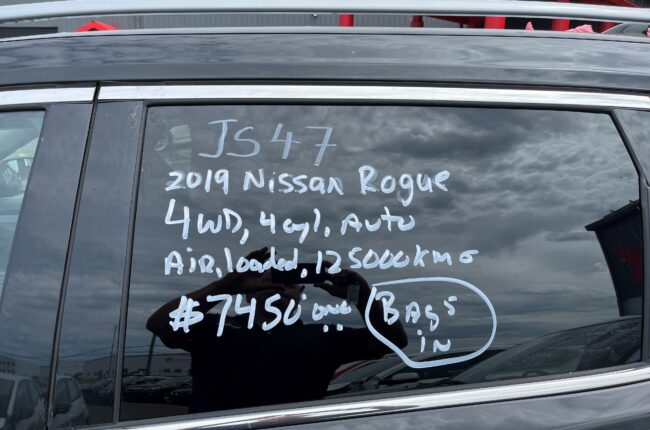 JS47
2019 Nissan Rogue
4WD, 4cyl, Auto
Air, loaded, 125000km
$7450
Bags
in